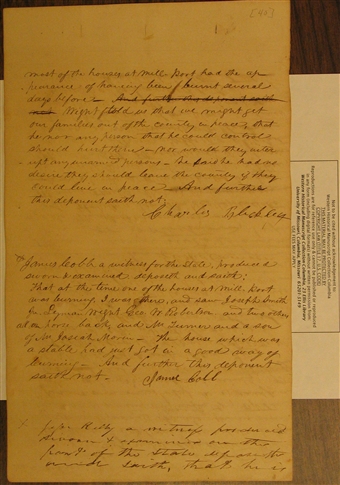 [40]
most of the houses at Mill Port had the ap-
pearance of having been burnt several
days before - And further this deponent saith
not Wight told us that we might get
our families out of the country in peace, that
he nor any person that he could control
should hurt them - nor would they inter-
cept any unarmed persons - he said he had no
desire they should leave the country if they
could live in peace And further
this deponent saith not,
Charles Blakley
James Cobb a witness for the State, produced
sworn & examined deposeth and saith;
That at the time one of the houses at Mill Port
was burning, I was there, and saw Joseph Smith
Jr. Lyman Wight Geo W Robinson and two others
all on horse back, and Mr Turner and a son
of Mr Josiah Morin - The house which was
a stable had not got in a good way of
burning - And further this deponent
saith not -
James Cobb
X Jesse Kelly a witness produced
sworn & examined on the
part of the State deposeth
and saith, that he is
Not to be cited without acknowledgement to:
Western Historical Manuscript Collection, Columbia, Missouri.
THIS MATERIAL MAY BE PROTECTED BY
COPYRIGHT LAW (TITLE 17, U.S. CODE).
Western Historical Manuscript Collection-Columbia, 23 Ellis Library
University of Missouri, Columbia, Missouri 65201-5149